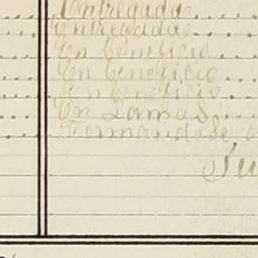 Entregada
Entregada
En beneficio
En beneficio
En beneficio
En Lomas